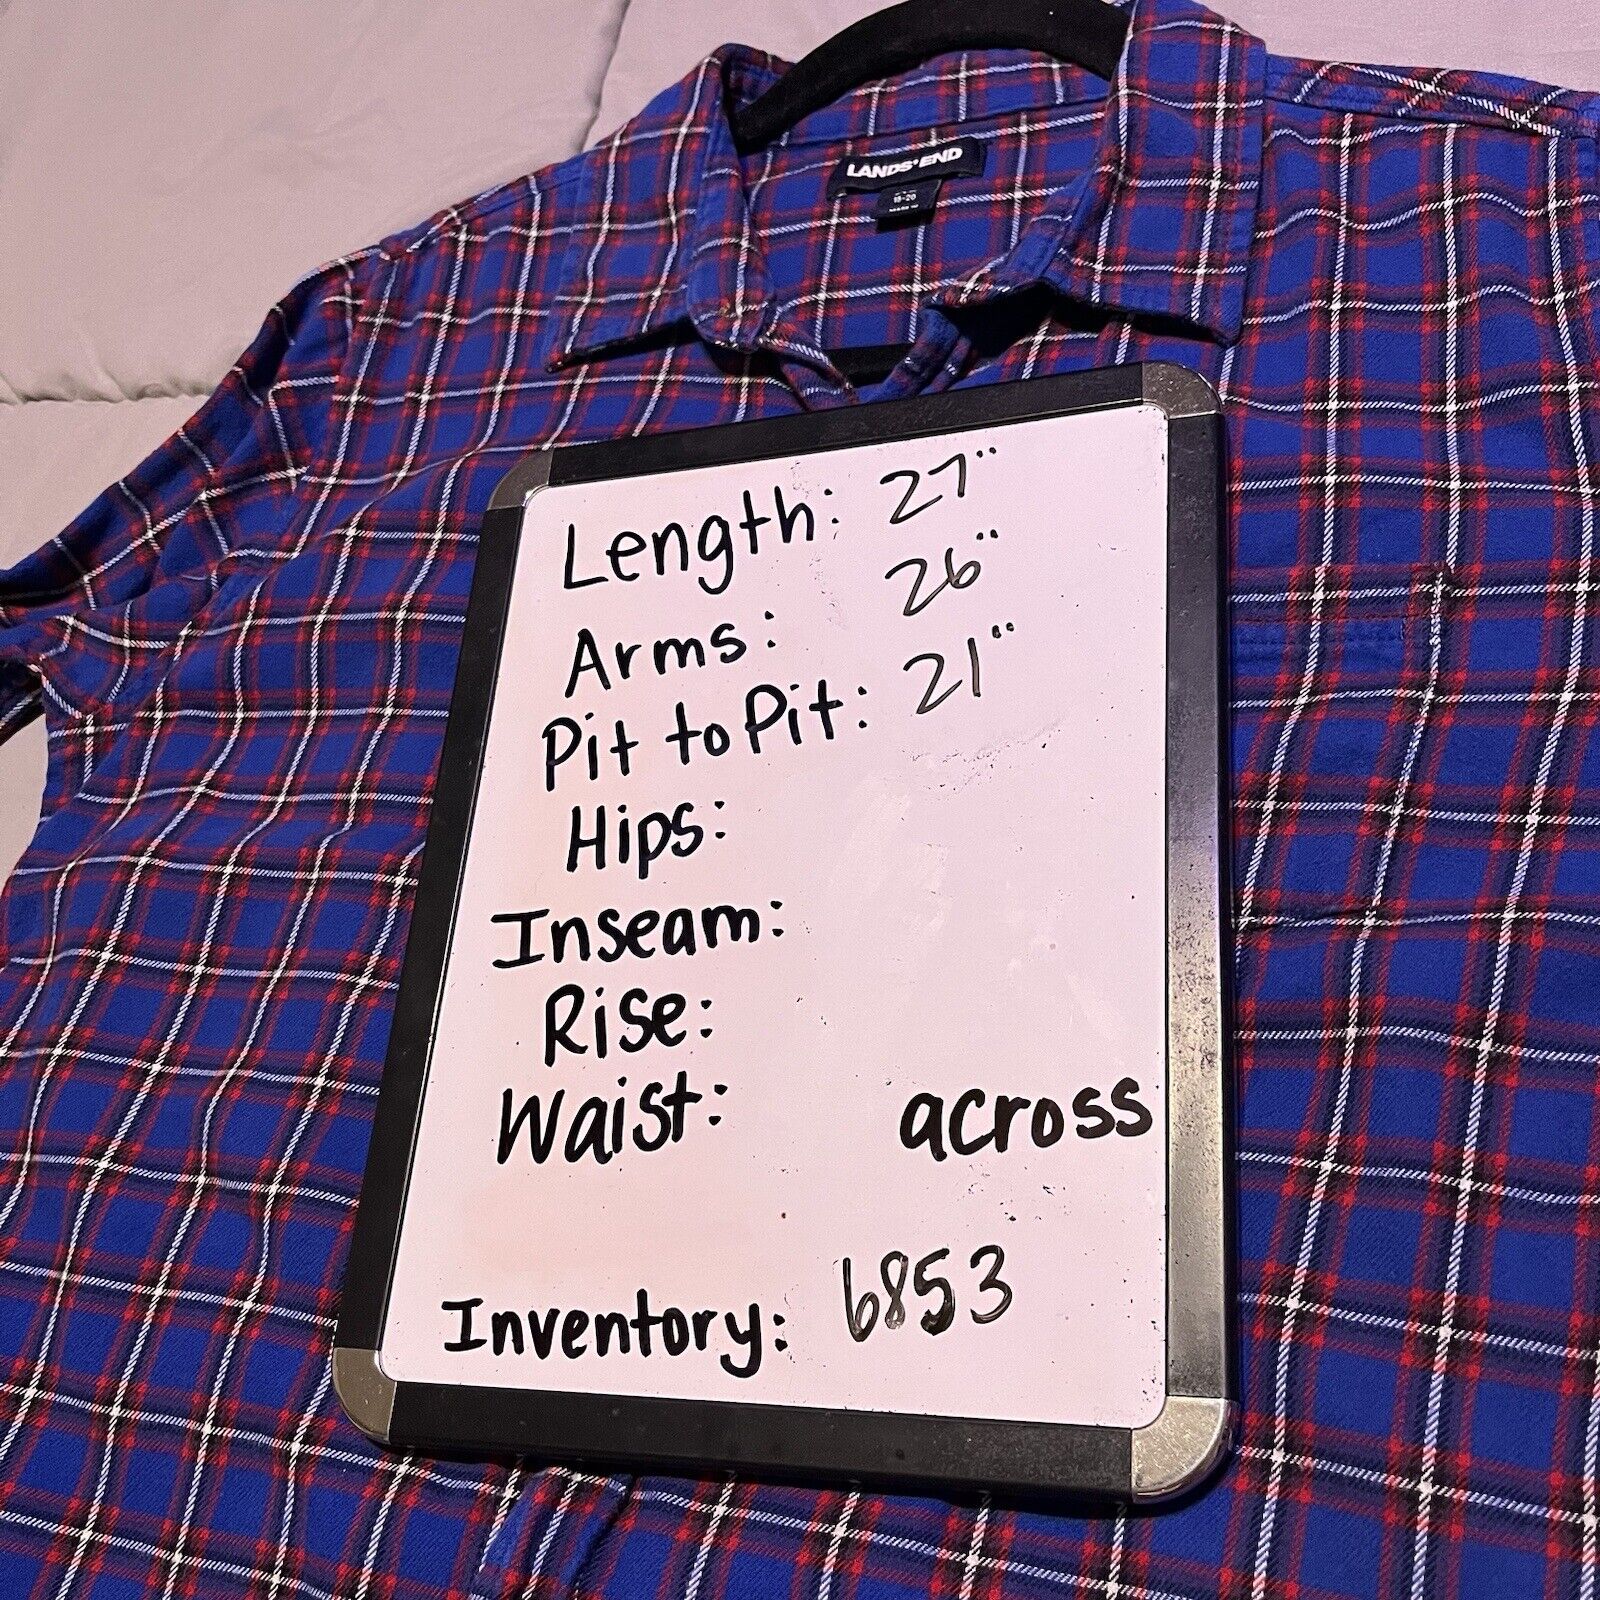 LANDS' END
18-20
Length: 27"
Arms: 26"
Pit to Pit: 21"
Hips:
Inseam:
Rise:
Waist: across
Inventory: 6853